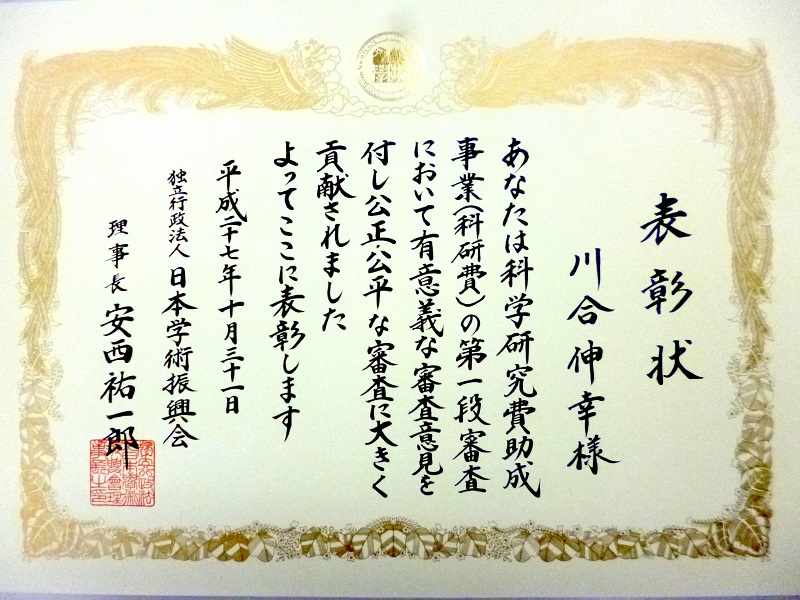 表彰状
川合伸幸様
あなたは科学研究費助成
事業(科研費)の第一段審査
において有意義な審査意見を
付し公正公平な審査に大きく
貢献されました
よってここに表彰します
平成二十七年十月三十一日
独立行政法人日本学術振興会
理事長 安西祐一郎